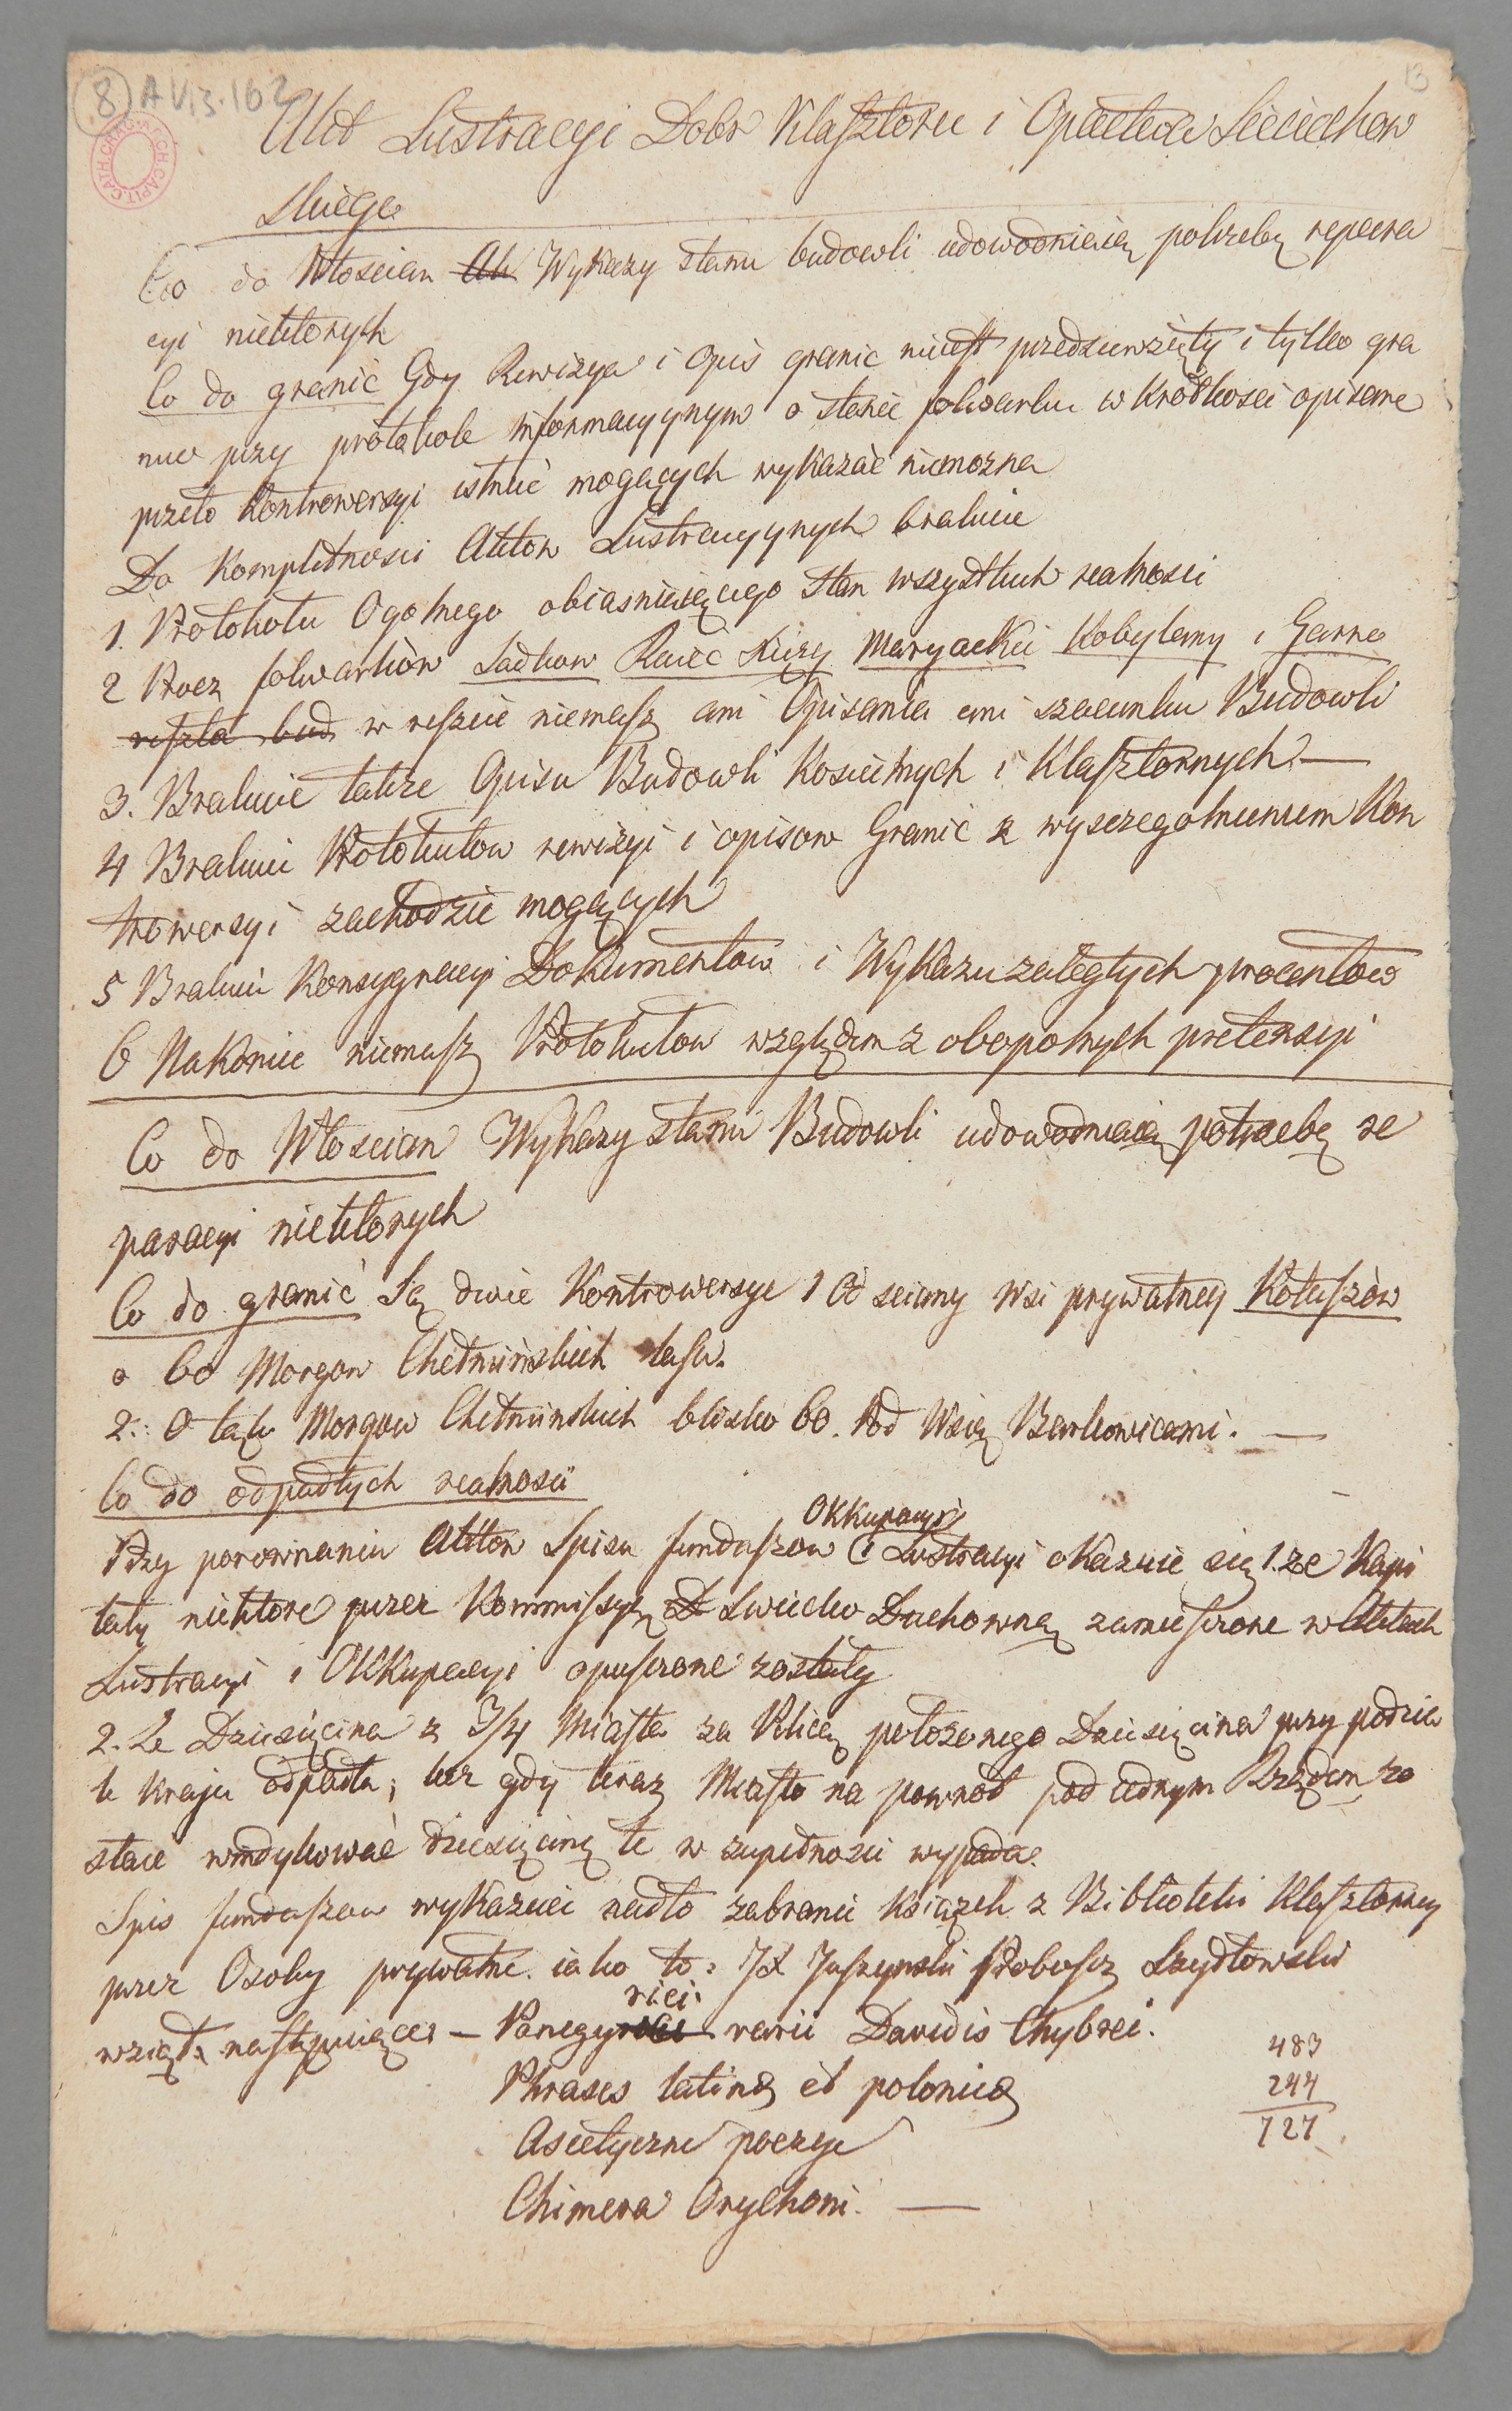 8 A V.3.162
13
ARCH. CAPIT. CATH. CRAC.
Akt Lustracyi Dobr Klasztoru i Opactwa Sieciechow
skiego
Co do Włoscian Ak Wykazy stanu budowli udowodniaią potrzebę repara
cyi niektorych
Co do granic Gdy Rewizya i Opis granic niiest przedsiewzięty i tylko gra
nice przy protokole informacyynym o stanie folwarku w krotkosci opisane
przeto kontrowersyi istnieć mogących wykazać niemozna
Do kompletnosci Aktow Lustracyynych brakuie
1. Protokołu Ogolnego obiasniaiącego stan wszystkich realnosci
2 Procz folwarków Sadkow Raiec Xięży Maryacki Kobylany i Garno
reszta bud w reszcie niemasz ani Opisania ani szacunku Budowli
3. Brakuie także Opisu Budowli Koscielnych i Klasztornych —
4 Brakuie Protokułow rewizyi i opisow Granic z wyszczegolnieniem Kon
trowersyi zachodzić mogących
5 Brakuie Konsygnacyi Dokumentow i Wykazu zaległych procentow
6 Nakoniec niemasz Protokułow względem z obopolnych pretensyi
Co do Włoscian Wykazy stanu Budowli udowodniaią potrzebę re
paracyi niektorych
Co do granic Są dwie Kontrowersye 1 Od sciany Wsi prywatney Kotuszów
o 60 Morgow Chełmińskich lasu.
2. O łąk Morgow Chełminskich blisko 60. Pod Wsią Barkowicami. —
Co do odpadłych realnosci
Przy porownaniu Aktow Spisu funduszow Okkupacyi i Lustracyi okazuie się 1. ze Kapi
tały niektore przez Kommissyą D Swiecko Duchowną zamieszczone w Aktach
Lustracyi i Okkupacyi opuszczone zostały
2. Ze Dziesięcina z 3/4 Miasta za Pilicą położonego Dziesięcina przy podzia
le kraju odpadła; lecz gdy teraz Miasto na powrot pod iednym Rządem zo
staie windykować dziesięcinę tę w zupełnosci wypada.
Spis funduszow wykazuie nadto zabranie Książek z Biblioteki Klasztorney
przez Osoby prywatne. iako to: JX Juszynski Proboszcz Szydłowski
wziął następuiące — Panegyrici varii Davidis Chybrei.
Phrases latinæ et polonicæ
Ascetyczne poezye
Chimera Orychovi. —
483
244
727